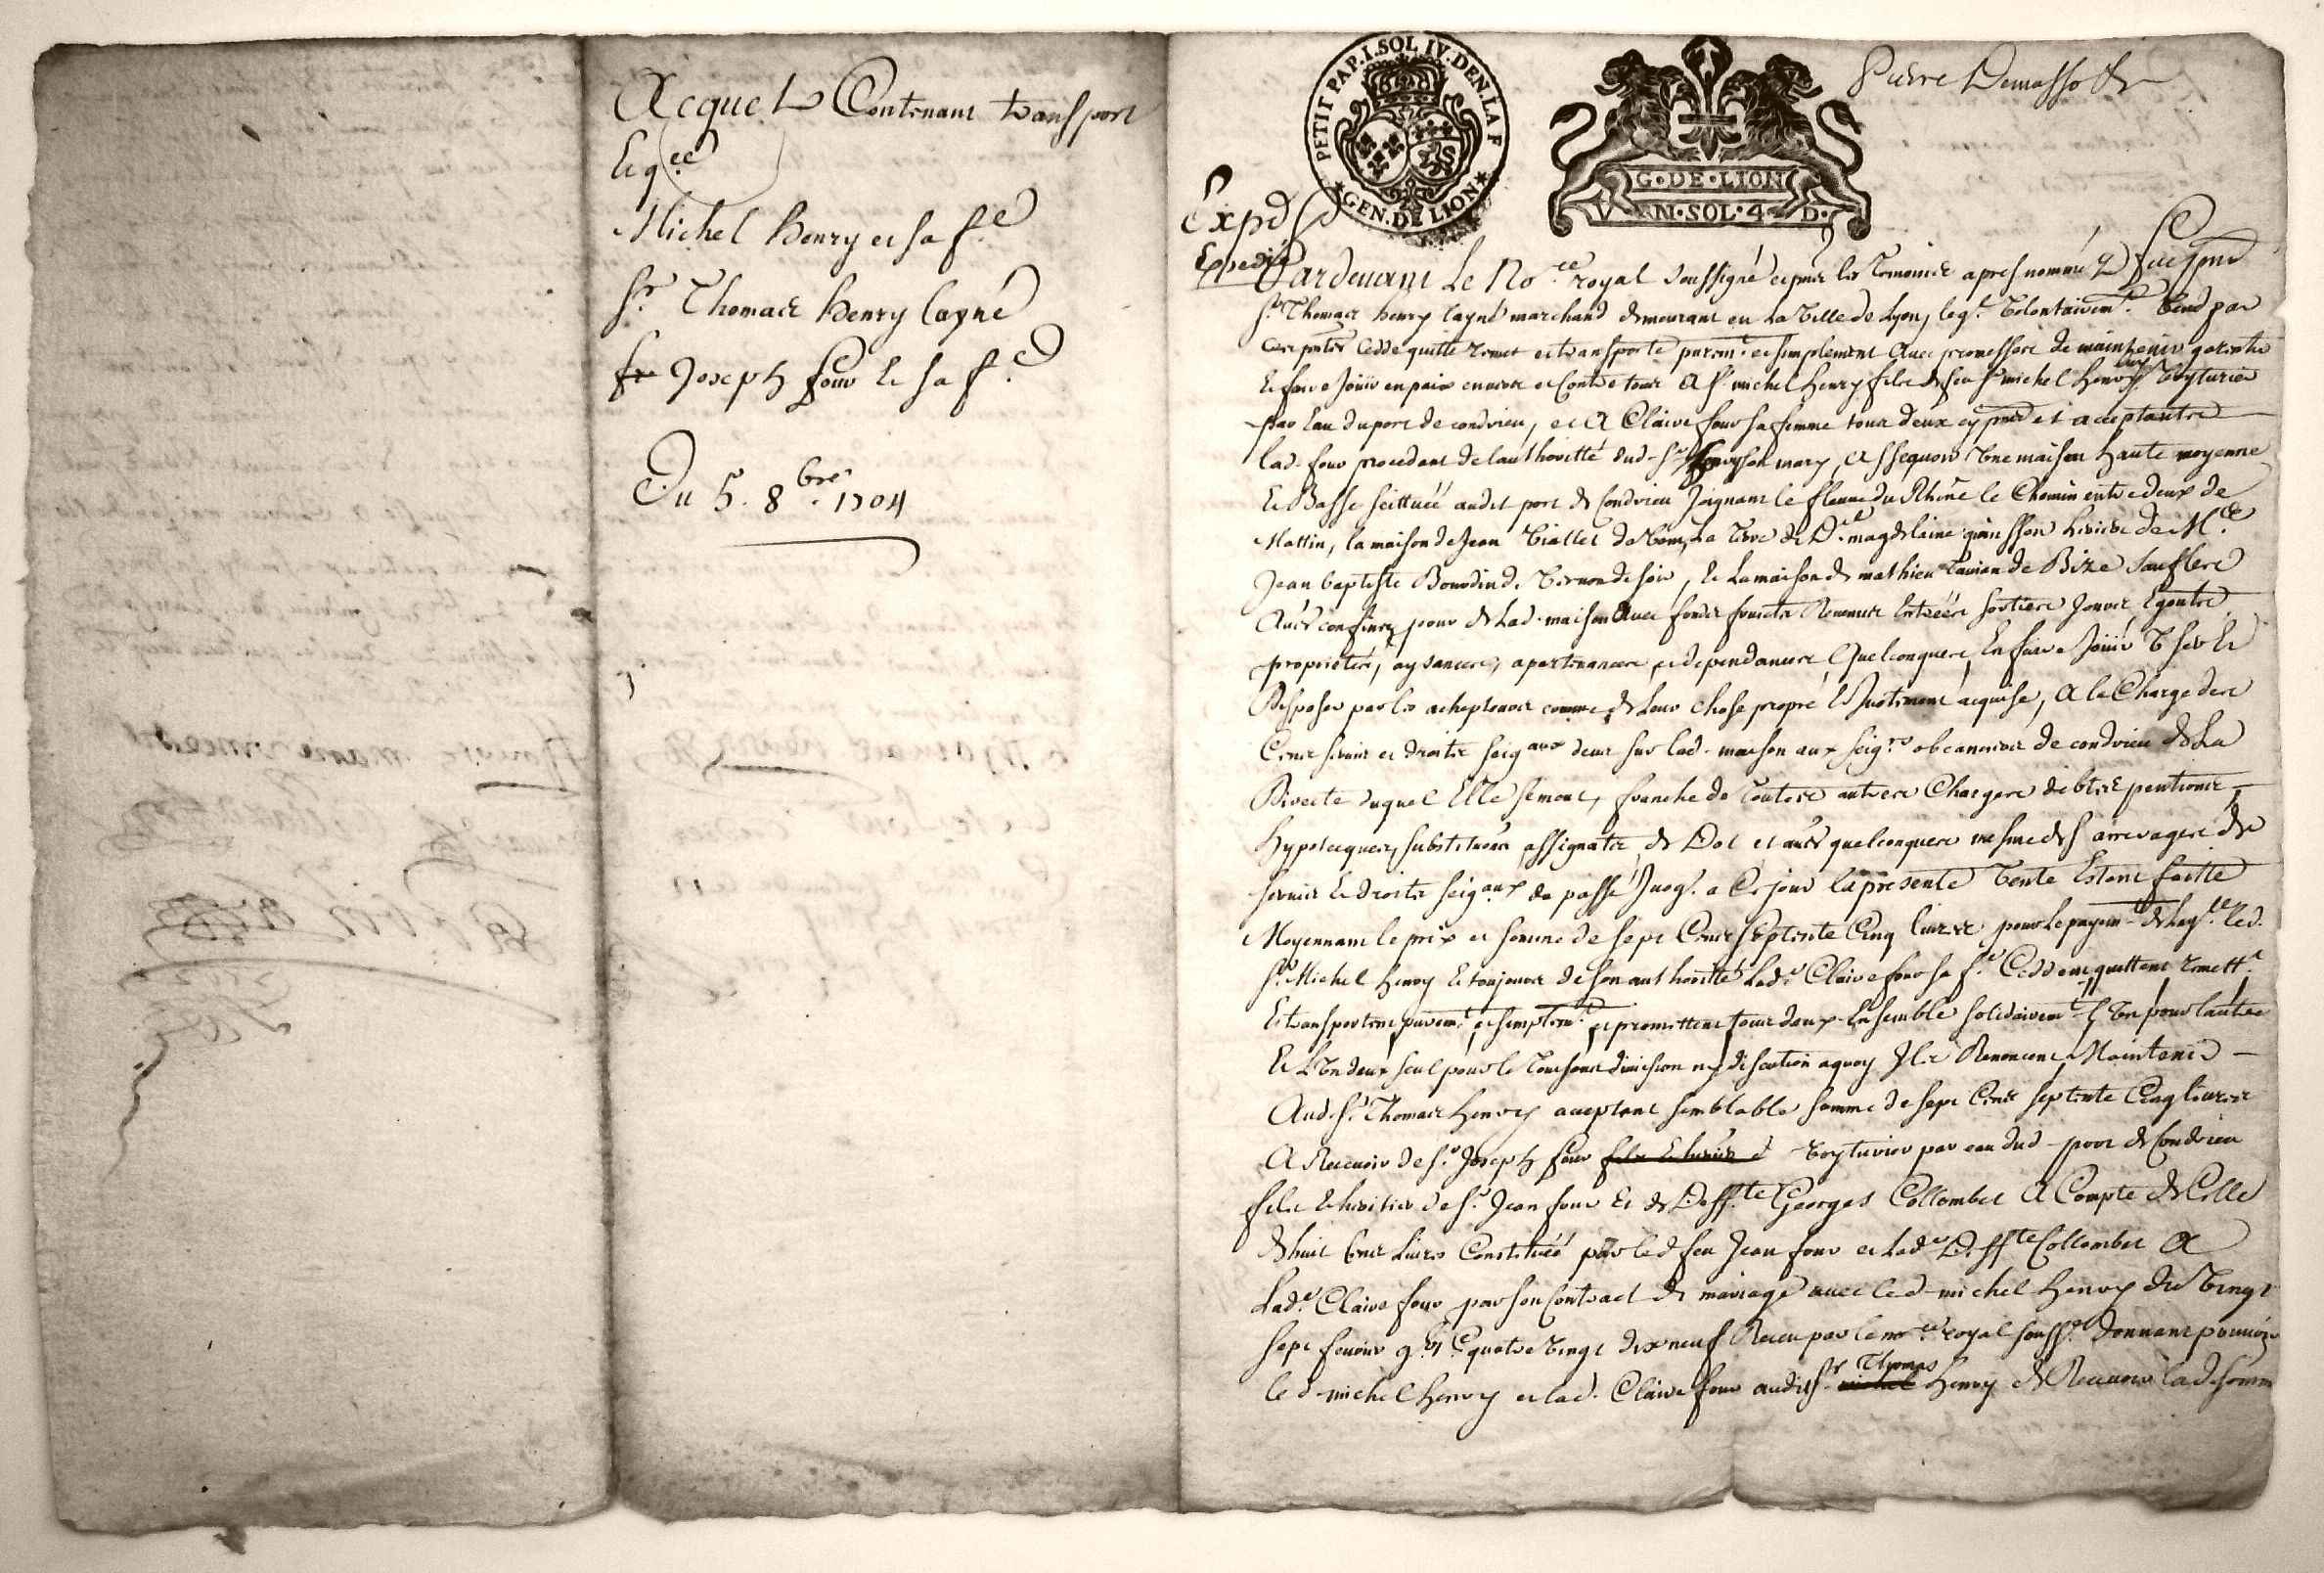 Acquet Contenant transport
Michel henry et sa f.e
Sr Thomas henry layné
Joseph four et sa f.e
Du 5. 8bre. 1704
PETIT PAP. I. SOL IV. DEN. LA F
GEN. DE LION
G·DE·LION
V N·SOL·4 D·
Pierre
Expd
Expedié
Pardevant Le No.re royal soussigné et pnts les temoins apres nommés fut pnt
Sr Thomas henry layné marchand demeurant en la Ville de Lyon, leq.l Volontairem.t Vend par
ces pntes cedde quitte remet et transporte purem.t et simplement avec promesses de maintenir garentir
Et faire Joüir en paix envers et Contre tous A Sr michel henry fils de feu Sr michel henry Voyturier
par Eau du port de condrieu, et A Claire four sa femme tous deux cy pnts et acceptants
lad. four procedant de lauthoritté dud. Sr henry son mary, A Scavoir Une maison haute moyenne
Et Basse scittuée audit port de Condrieu Joignant le fleuve du Rhosne le Chemin entre deux de
Mattin, la maison de Jean Viallet de Vent, La Terre de D.lle magdelaine heritiere de M.e
Jean baptiste Bourdin de soir, Et La maison de mathieu de Bize Sauf Les
Autres confins, pour de Lad. maison Avec fonds fruicts Revenus Entrées sorties Jours, Egouts
proprietés, aysances, apartenances et dependances Quelconques, En faire Joüir User Et
Disposer par les achepteurs comme de Leur chose propre Et Justement acquise, A la Charge des
Cens servis et droits seig.aux deus sur lad. maison aux seig.rs obeanciers de condrieu de La
Directe duquel Elle se meut, franche de Toutes autres Charges debtes pentions
hypotecques, substitutions assignats de Dot et autres quelconques mesme des arrerages de
servis Et droits seig.aux du passé Jusq. a Ce jour la presente Vente Estant faitte
Moyennant le prix et somme de Sept Cents septente Cinq livres pour le payem.t de Laq.lle led.
Sr Michel henry Et toujours de son authoritté Lad. Claire four sa f.e Ceddent quittent remett.t
Et transportent purem.t et simplem.t et promettent tous deux Ensemble solidairem.t l'Un pour lautre
Et L'Un deux seul pour le Tout sans division ny discution a quoy Ils Renoncent, Maintenir
Aud. Sr Thomas henry acceptant semblable somme de Sept Cents septente Cinq livres
A Recevoir de Sr Joseph four Voyturier par eau dud. port de Condrieu
fils Et heritier de Sr Jean four Et de Deff.te Georges Collombet A Compte de Celle
de huit Cent Livres Constituée par led. feu Jean four et Lad. Deff.te Collombet A
Lad. Claire four par son Contract de mariage avec led. michel henry du Vingt
sept quatre Vingt dix neuf Receu par le no.re royal souss.é Donnant pouvoir
led. michel henry et lad. Claire four audit Sr Thomas henry de Recevoir lad. somme